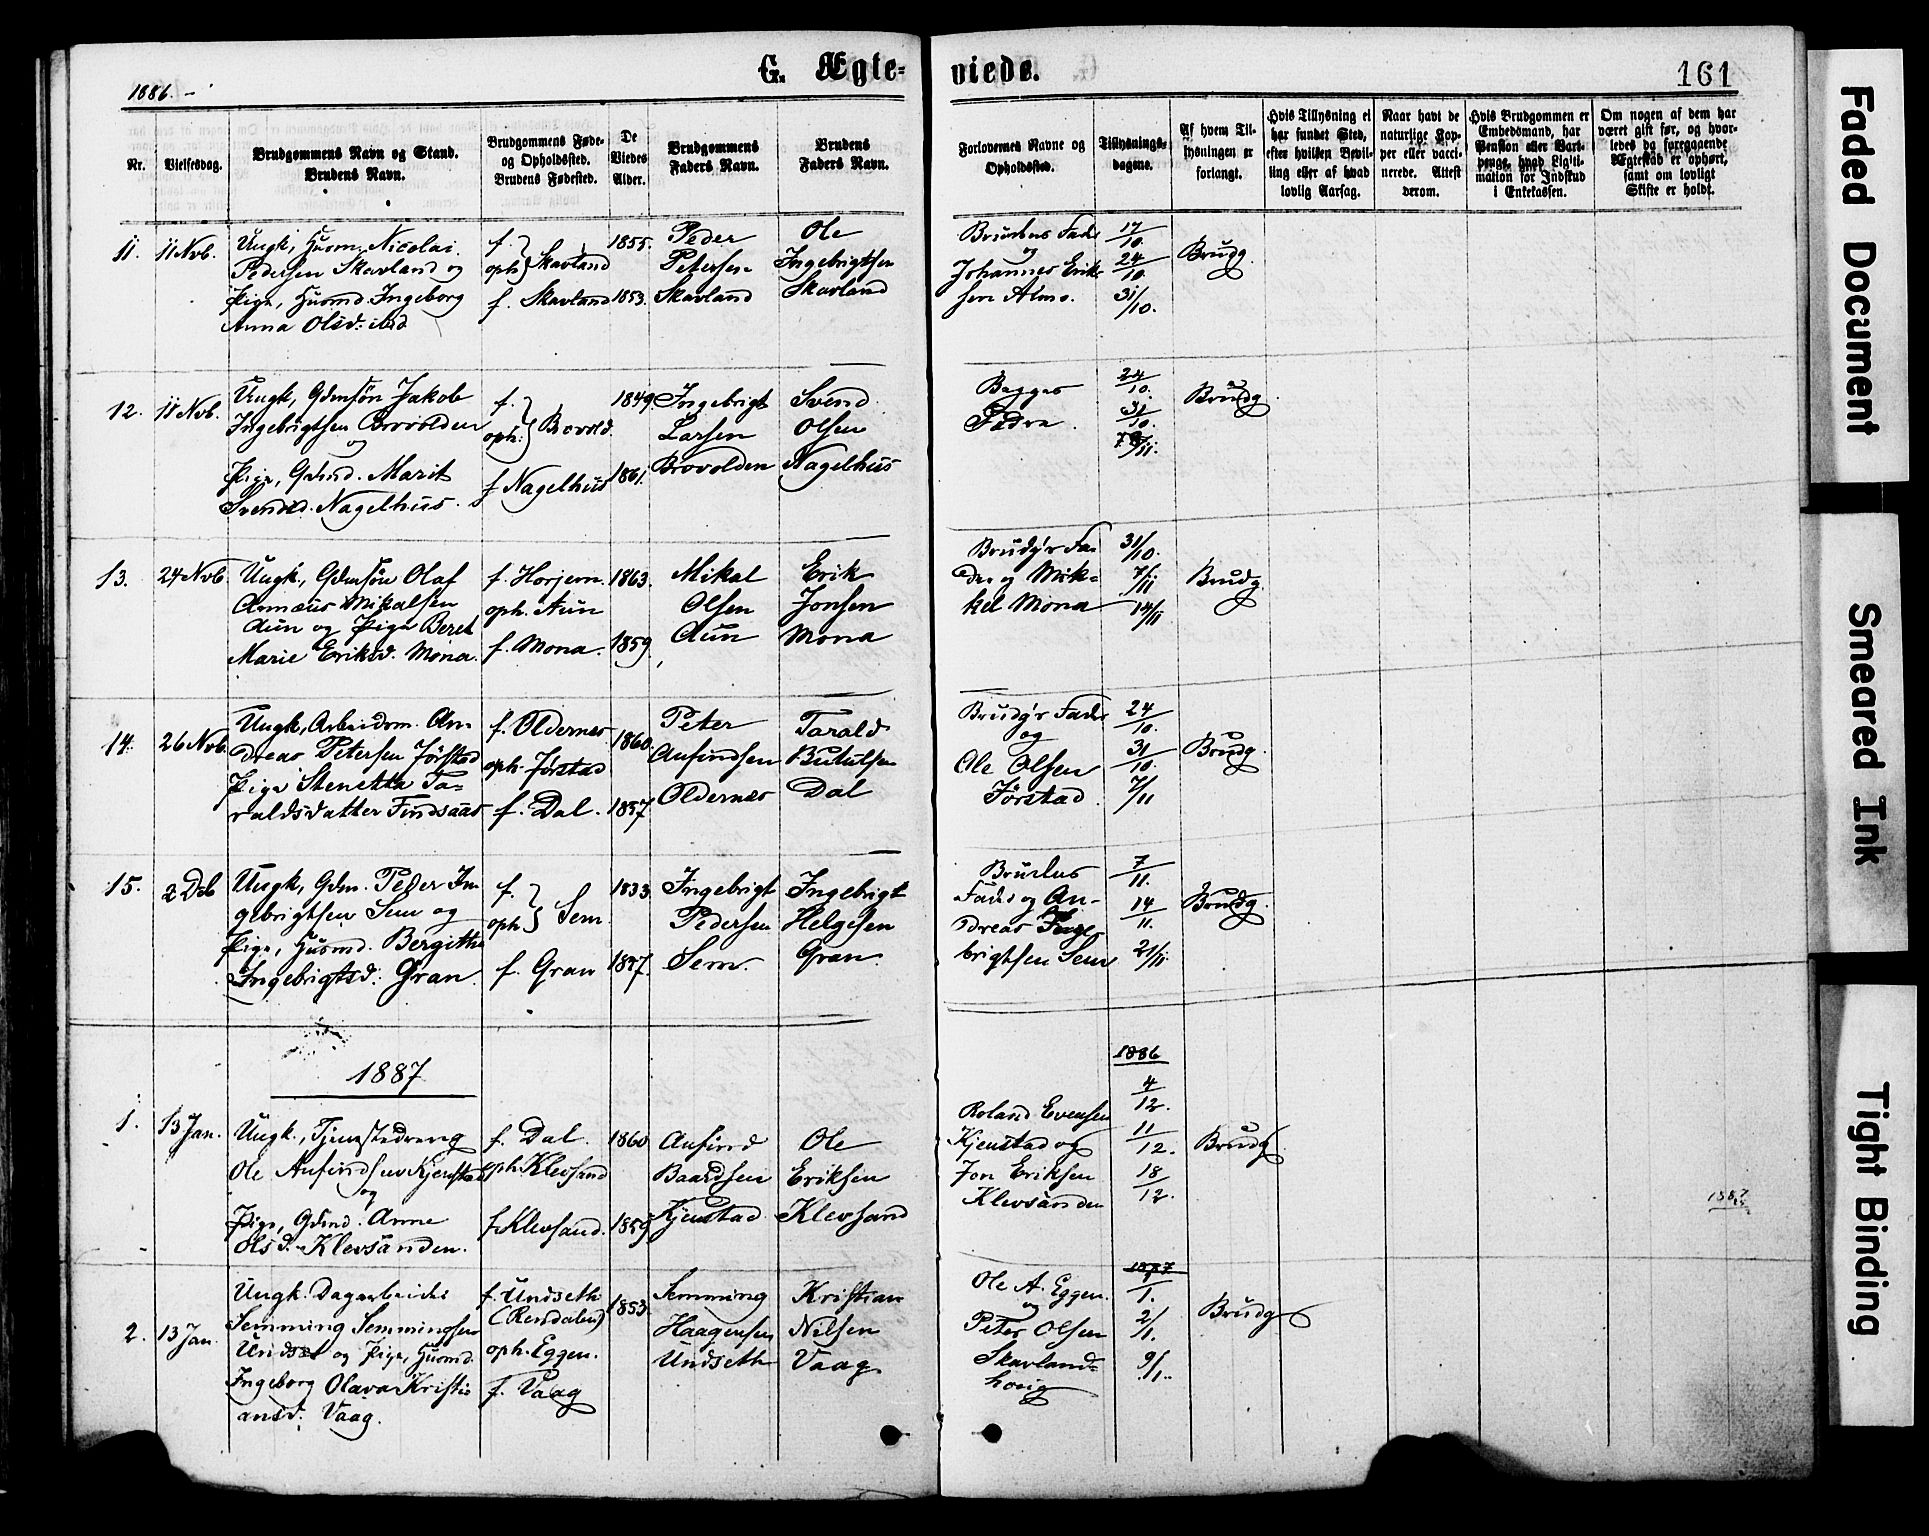 1886. -
G. Ægte-
viede.
161
Nr.
Vielsesdag.
Brudgommens Navn og Stand.
Brudens Navn.
Brudgommens Føde-
og Opholdssted.
Brudens Fødested.
De
Viedes
Alder.
Brudgommens
Faders Navn.
Brudens
Faders Navn.
Forlovernes Navne og
Opholdssted.
Tillysnings-
dagene.
Af hvem Til-
lysningen er
forlangt.
Hvis Tillysning ei
har fundet Sted,
efter hvilken Bevil-
ling eller af hvad
lovlig Aarsag.
Naar havt de
naturlige Kop-
per eller vacci-
nerede. Attest
derom.
Hvis Brudgommen er
Embedsmand, har
Pension eller Vart-
penge, hvad Legiti-
mation for Indskud
i Enkekassen.
Om nogen af dem har
været gift før, og hvor-
ledes da foregaaende
Ægteskab er ophørt,
samt om lovligt
Skifte er holdt.
11. 11 Nvb.
Ungk, Husm. Nicolai
Pedersen Skavland og
Pige, Husmd. Ingeborg
Anna Olsd. ibid
f.
oph. } Skavland
f. Skavland
1855.
1853.
Peder
Petersen
Skavland
Ole
Ingebrigtsen
Skavland
Brudens Fader
og
Johannes Erik-
sen Almo.
17/10.
24/10.
31/10.
Brudg.
12. 11 Nvb.
Ungk, Gdmsøn Jakob
Ingebrigtsen Brovolden
og
Pige, Gdmd. Marit
Svendsd. Nagelhus.
f.
oph. } Brovold.
f Nagelhus
1849.
1861.
Ingebrigt
Larsen
Brovolden
Svend
Olsen
Nagelhus
Begges
Fædre.
24/10.
31/10.
7/11.
Brudg.
13. 24 Nvb.
Ungk, Gdmsøn Olaf
Annæus Mikalsen
Aun og Pige Beret
Marie Eriksd. Mona.
f. Horjem.
oph. Aun
f. Mona.
1863.
1859.
Mikal
Olsen
Aun
Erik
Jonsen
Mona
Brudg's Fa-
der og Mik-
kel Mona
31/10.
7/11
14/11
Brudg.
14. 26 Nvb.
Ungk, Arbeidsm. An-
dreas Petersen Jørstad
Pige Stenetta Ta-
raldsdatter Findsaas
f. Oldernes
oph. Jørstad
f. Dal.
1860.
1857.
Peter
Anfindsen
Oldernes
Tarald
Botulfsen
Dal
Brudg's Fader
og
Ole Olsen
Jørstad.
24/10.
31/10.
7/11
Brudg.
15. 2 Dcb
Ungk, Gdm. Peder In-
gebrigtsen Sem og
Pige, Husmd. Bergitta
Ingebrigtsd. Gran.
f.
oph. } Sem.
f. Gran
1833.
1857.
Ingebrigt
Pedersen
Sem.
Ingebrigt
Helgesen
Gran.
Brudens
Fader og An-
dreas Inge-
brigtsen Sem
7/11.
14/11.
21/11
Brudg.
1887
1. 13 Jan.
Ungk., Tjenstedreng
Ole Anfindsen Kjenstad
og
Pige, Gdmd. Anne
Olsd. Klevsanden.
f. Dal.
oph. Klevsand
f. Klevsand.
1860
1859
Anfind
Baardsen
Kjenstad
Ole
Eriksen
Klevsand
Roland Evensen
Kjenstad og
Jon Eriksen
Klevsanden
1886
4/12.
11/12.
18/12.
Brudg.
1887
2. 13 Jan.
Ungk. Dagarbeider
Semming Semmingsen
Undset og Pige, Husmd.
Ingeborg Olava Kristi-
ansd. Vaag.
f. Undseth
(Rendalen)
oph. Eggen.
f. Vaag
1853.
Semming
Haagensen
Undseth
Kristian
Nilsen
Vaag
Ole A. Eggen.
og
Peter Olsen
Skavland-
hovig
1887
1/1.
2/1.
9/1.
Brudg
Faded Document
Smeared Ink
Tight Binding